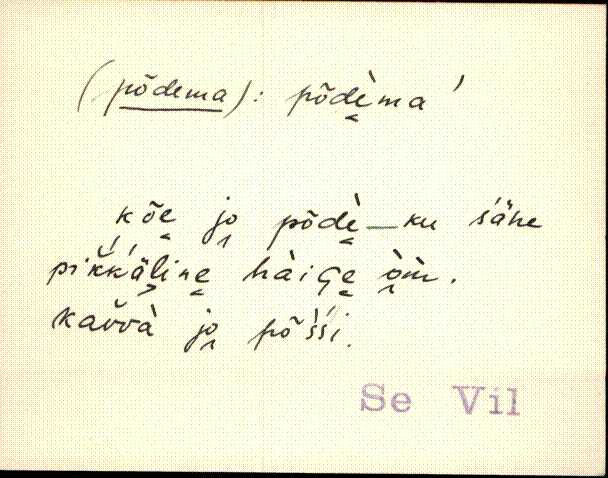 (põdema): põdè̬ma'
kõe̬ jo̭ põdè̬ — ku śäne
pik̆ḱäline̬ hàiGe̬ ò̭m̀.
kav̆và jo̭ põš́ši.
Se Vil